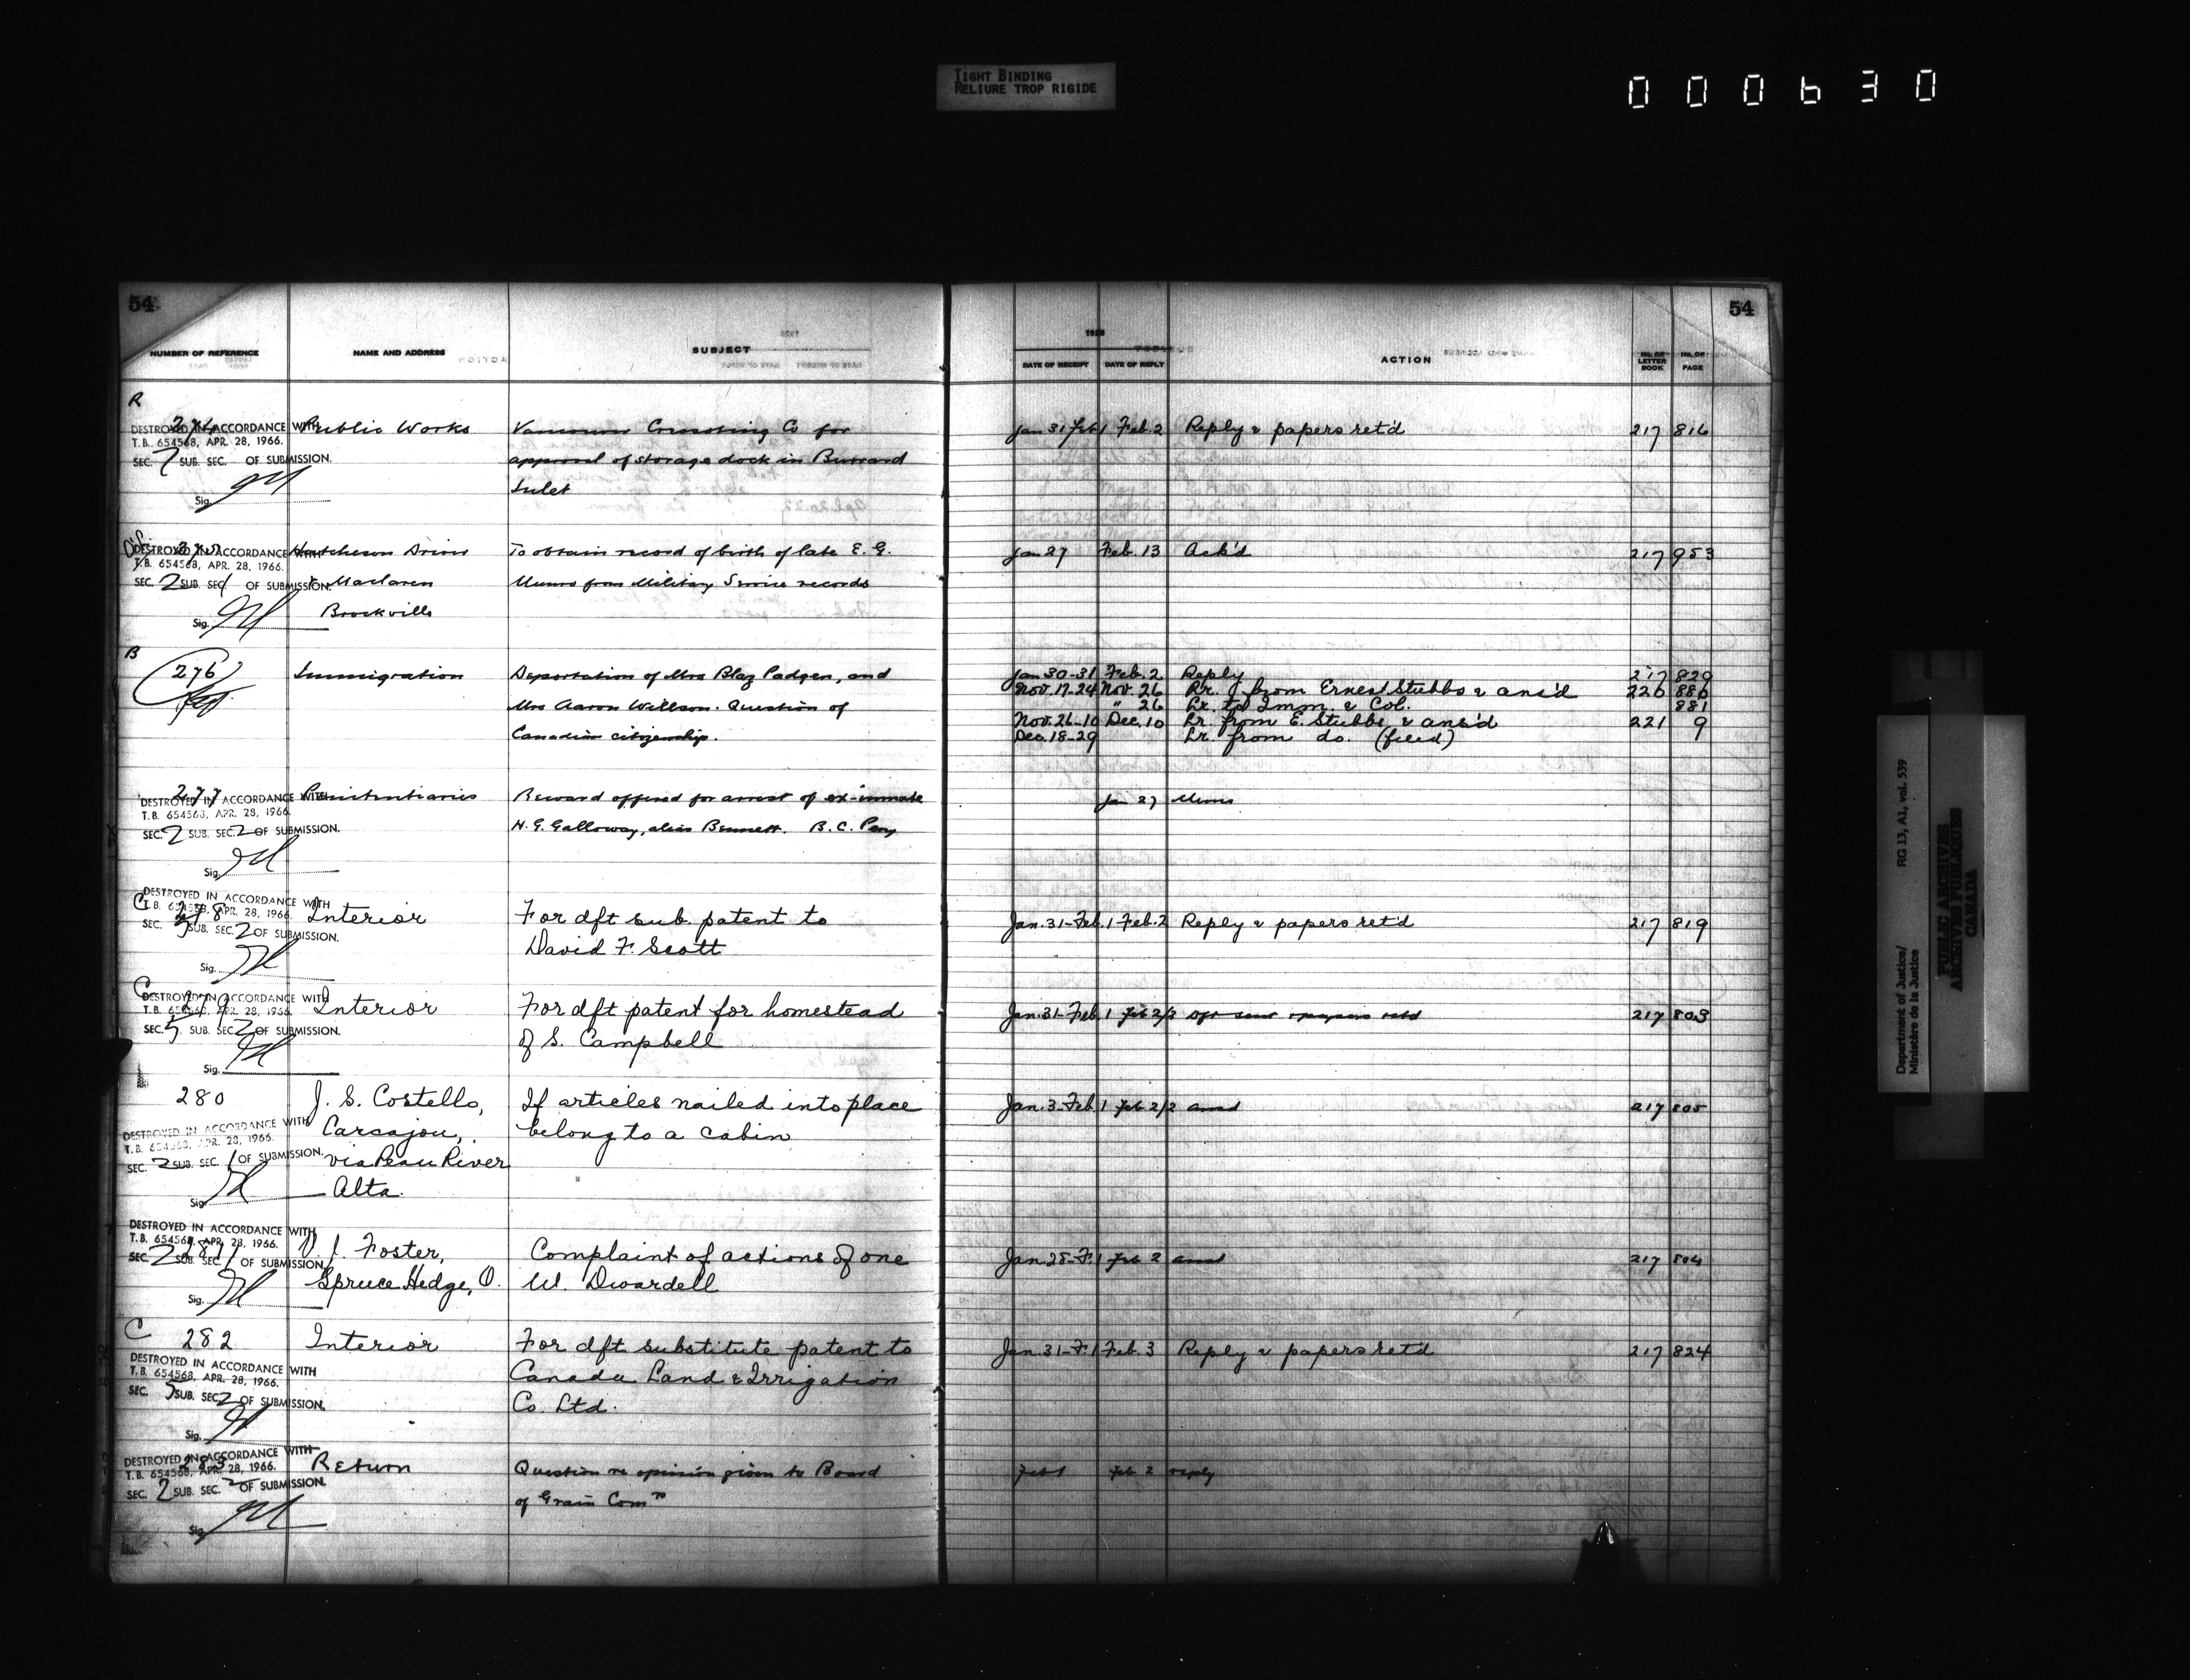 TIGHT BINDING
RELIURE TROP RIGIDE
000630
54
NUMBER OF REFERENCE NAME AND ADDRESS SUBJECT
R
274 Public Works Vancouver Co for
approval of storage dock in Burrard
Inlet
DESTROYED IN ACCORDANCE WITH
T.B. 654568, APR. 28, 1966.
SEC. 7 SUB. SEC. OF SUBMISSION.
Sig.
275 Hutcheson Driver To obtain record of birth of late E. G.
& Maclaren Munro from Military Service records
Brockville
DESTROYED IN ACCORDANCE WITH
T.B. 654568, APR. 28, 1966.
SEC. 2 SUB. SEC. 1 OF SUBMISSION.
Sig.
B
276 Immigration Deportation of Mrs Blaz Padgen, and
Mrs Aaron Willson. Question of
Canadian citizenship.
277 Penitentiaries Reward offered for arrest of ex-inmate
H. G. Galloway, alias Bennett. B. C. Peny
DESTROYED IN ACCORDANCE WITH
T.B. 654568, APR. 28, 1966.
SEC. 2 SUB. SEC. 2 OF SUBMISSION.
Sig.
C
278 Interior For dft sub. patent to
David F. Scott
DESTROYED IN ACCORDANCE WITH
T.B. 654568, APR. 28, 1966.
SEC. 5 SUB. SEC. 2 OF SUBMISSION.
Sig.
C
279 Interior For dft patent for homestead
of S. Campbell
DESTROYED IN ACCORDANCE WITH
T.B. 654568, APR. 28, 1966.
SEC. 5 SUB. SEC. 2 OF SUBMISSION.
Sig.
280 J. S. Costello, If articles nailed into place
Carcajou, belong to a cabin
via Peace River
Alta.
DESTROYED IN ACCORDANCE WITH
T.B. 654568, APR. 28, 1966.
SEC. 2 SUB. SEC. 1 OF SUBMISSION.
Sig.
281 V. J. Foster, Complaint of actions of one
Spruce Hedge, O. W. Dwardell
DESTROYED IN ACCORDANCE WITH
T.B. 654568, APR. 28, 1966.
SEC. 2 SUB. SEC. 1 OF SUBMISSION.
Sig.
C
282 Interior For dft substitute patent to
Canada Land & Irrigation
Co. Ltd.
DESTROYED IN ACCORDANCE WITH
T.B. 654568, APR. 28, 1966.
SEC. 5 SUB. SEC. 2 OF SUBMISSION.
Sig.
283 Return Question re opinion given to Board
of Grain Comrs
DESTROYED IN ACCORDANCE WITH
T.B. 654568, APR. 28, 1966.
SEC. 2 SUB. SEC. 2 OF SUBMISSION.
Sig.
54
1928
DATE OF RECEIPT DATE OF REPLY ACTION NO. OF LETTER BOOK NO. OF PAGE
Jan 31 Feb 1 Feb. 2 Reply & papers ret'd 217 816
Jan 27 Feb. 13 Ack'd 217 953
Jan 30-31 Feb. 2 Reply 217 820
Nov. 17-24 Nov. 26 Lr. from Ernest Stubbs & ans'd 220 880
" 26 Lr. to Imm. & Col. 881
Nov. 26-10 Dec. 10 Lr. from E. Stubbs & ans'd 221 9
Dec. 18-29 Lr. from do. (filed)
Jan 27 Memo
Jan. 31-Feb. 1 Feb. 2 Reply & papers ret'd 217 819
Jan. 31-Feb. 1 Feb 2/2 Dft sent & papers retd 217 803
Jan. 3-Feb. 1 Feb 2/2 ansd 217 805
Jan. 28-F. 1 Feb 2 ansd 217 804
Jan. 31-F. 1 Feb. 3 Reply & papers ret'd 217 824
Feb 1 Feb 2 reply
Department of Justice/ RG 13, A1, vol. 539
Ministère de la Justice
PUBLIC ARCHIVES
ARCHIVES PUBLIQUES
CANADA